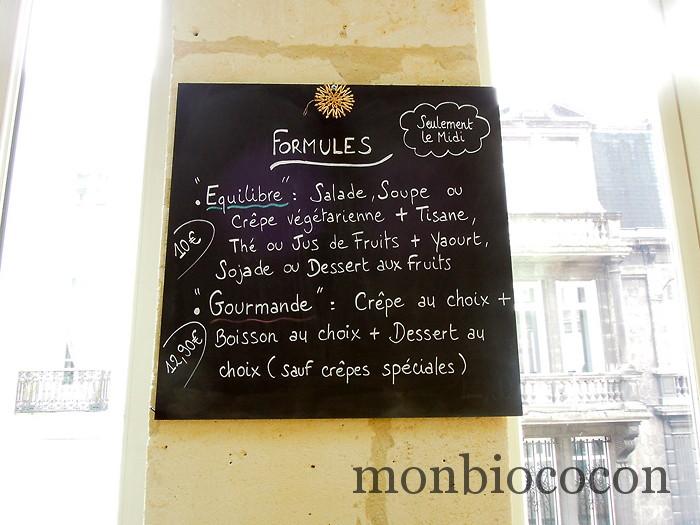 FORMULES
Seulement
le Midi
• "Equilibre" : Salade, Soupe ou
Crêpe végétarienne + Tisane,
Thé ou Jus de Fruits + Yaourt,
Sojade ou Dessert aux Fruits
10€
• "Gourmande" : Crêpe au choix +
Boisson au choix + Dessert au
choix (sauf crêpes spéciales)
12,90€
monbiococon